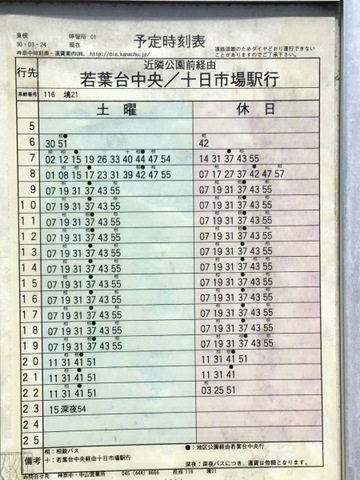 東横 停留所 01
30・03・24 現在
予定時刻表
神奈中時刻表・運賃案内URL http://dia.kanachu.jp/
道路混雑のためダイヤどおり運行できない
ことがありますのでご了承下さい。
行先
近隣公園前経由
若葉台中央／十日市場駅行
系統番号 116 境21
土曜 休日
5
6 30 51 42
7 02 12 15 19 26 33 40 44 47 54 14 31 37 43 55
8 01 08 15 17 23 31 39 42 47 55 07 17 27 37 42 47 57
9 07 19 31 37 43 55 07 19 31 37 43 55
10 07 19 31 37 43 55 07 19 31 37 43 55
11 07 19 31 37 43 55 07 19 31 37 43 55
12 07 19 31 37 43 55 07 19 31 37 43 55
13 07 19 31 37 43 55 07 19 31 37 43 55
14 07 19 31 37 43 55 07 19 31 37 43 55
15 07 19 31 37 43 55 07 19 31 37 43 55
16 07 19 31 37 43 55 07 19 31 37 43 55
17 07 19 31 37 43 55 07 19 31 37 43 55
18 07 19 31 37 43 55 07 19 31 37 43 55
19 07 19 31 37 43 55 07 19 31 37 43 55
20 11 31 41 51 11 31 41 51
21 11 31 41 51 11 31 41
22 11 31 41 51 03 25 51
23 15 深夜54
24
25
備考
相：相鉄バス ●：地区公園経由若葉台中央行
十：若葉台中央経由十日市場駅行 深夜：深夜バスにつき、運賃は倍額となります。
お問合せ先 神奈中・中山営業所